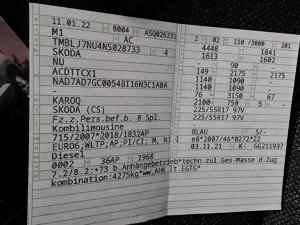 11.01.22 8004 ASQ026231
M1 AC
TMBLJ7NU4N5028733 4
SKODA
NU
ACDTTCX1
NAD7AD7GC0054BI16N3C1ABA
-
KAROQ
SKODA (CS)
Fz.z.Pers.bef.b. 8 Spl.
Kombilimousine
715/2007*2018/1832AP
EURO6,WLTP;AP;PI/CI; M, N1 I
Diesel
0002 36AP 1968
2 02 150 /3000 201
4448 1841
1613 1602
- 90
149 2175
2175 1140
1140
76 3150 67
2100 750 5 -
225/55R17 97V
225/55R17 97V
BLAU 5/-
e8*2007/46*0272*22
03.11.21 K- GG211937
7.2/8.2:*73 b.Anhängebetrieb*techn zul Ges-Masse d.Zug
kombination:4275kg*ww.AHK lt.EGTG*